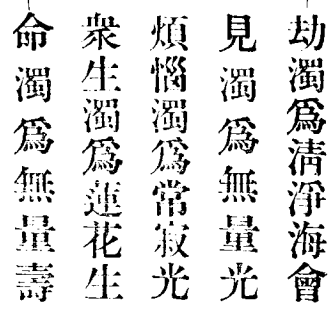 劫濁爲清淨海會
見濁爲無量光
煩惱濁爲常寂光
衆生濁爲蓮花生
命濁爲無量壽